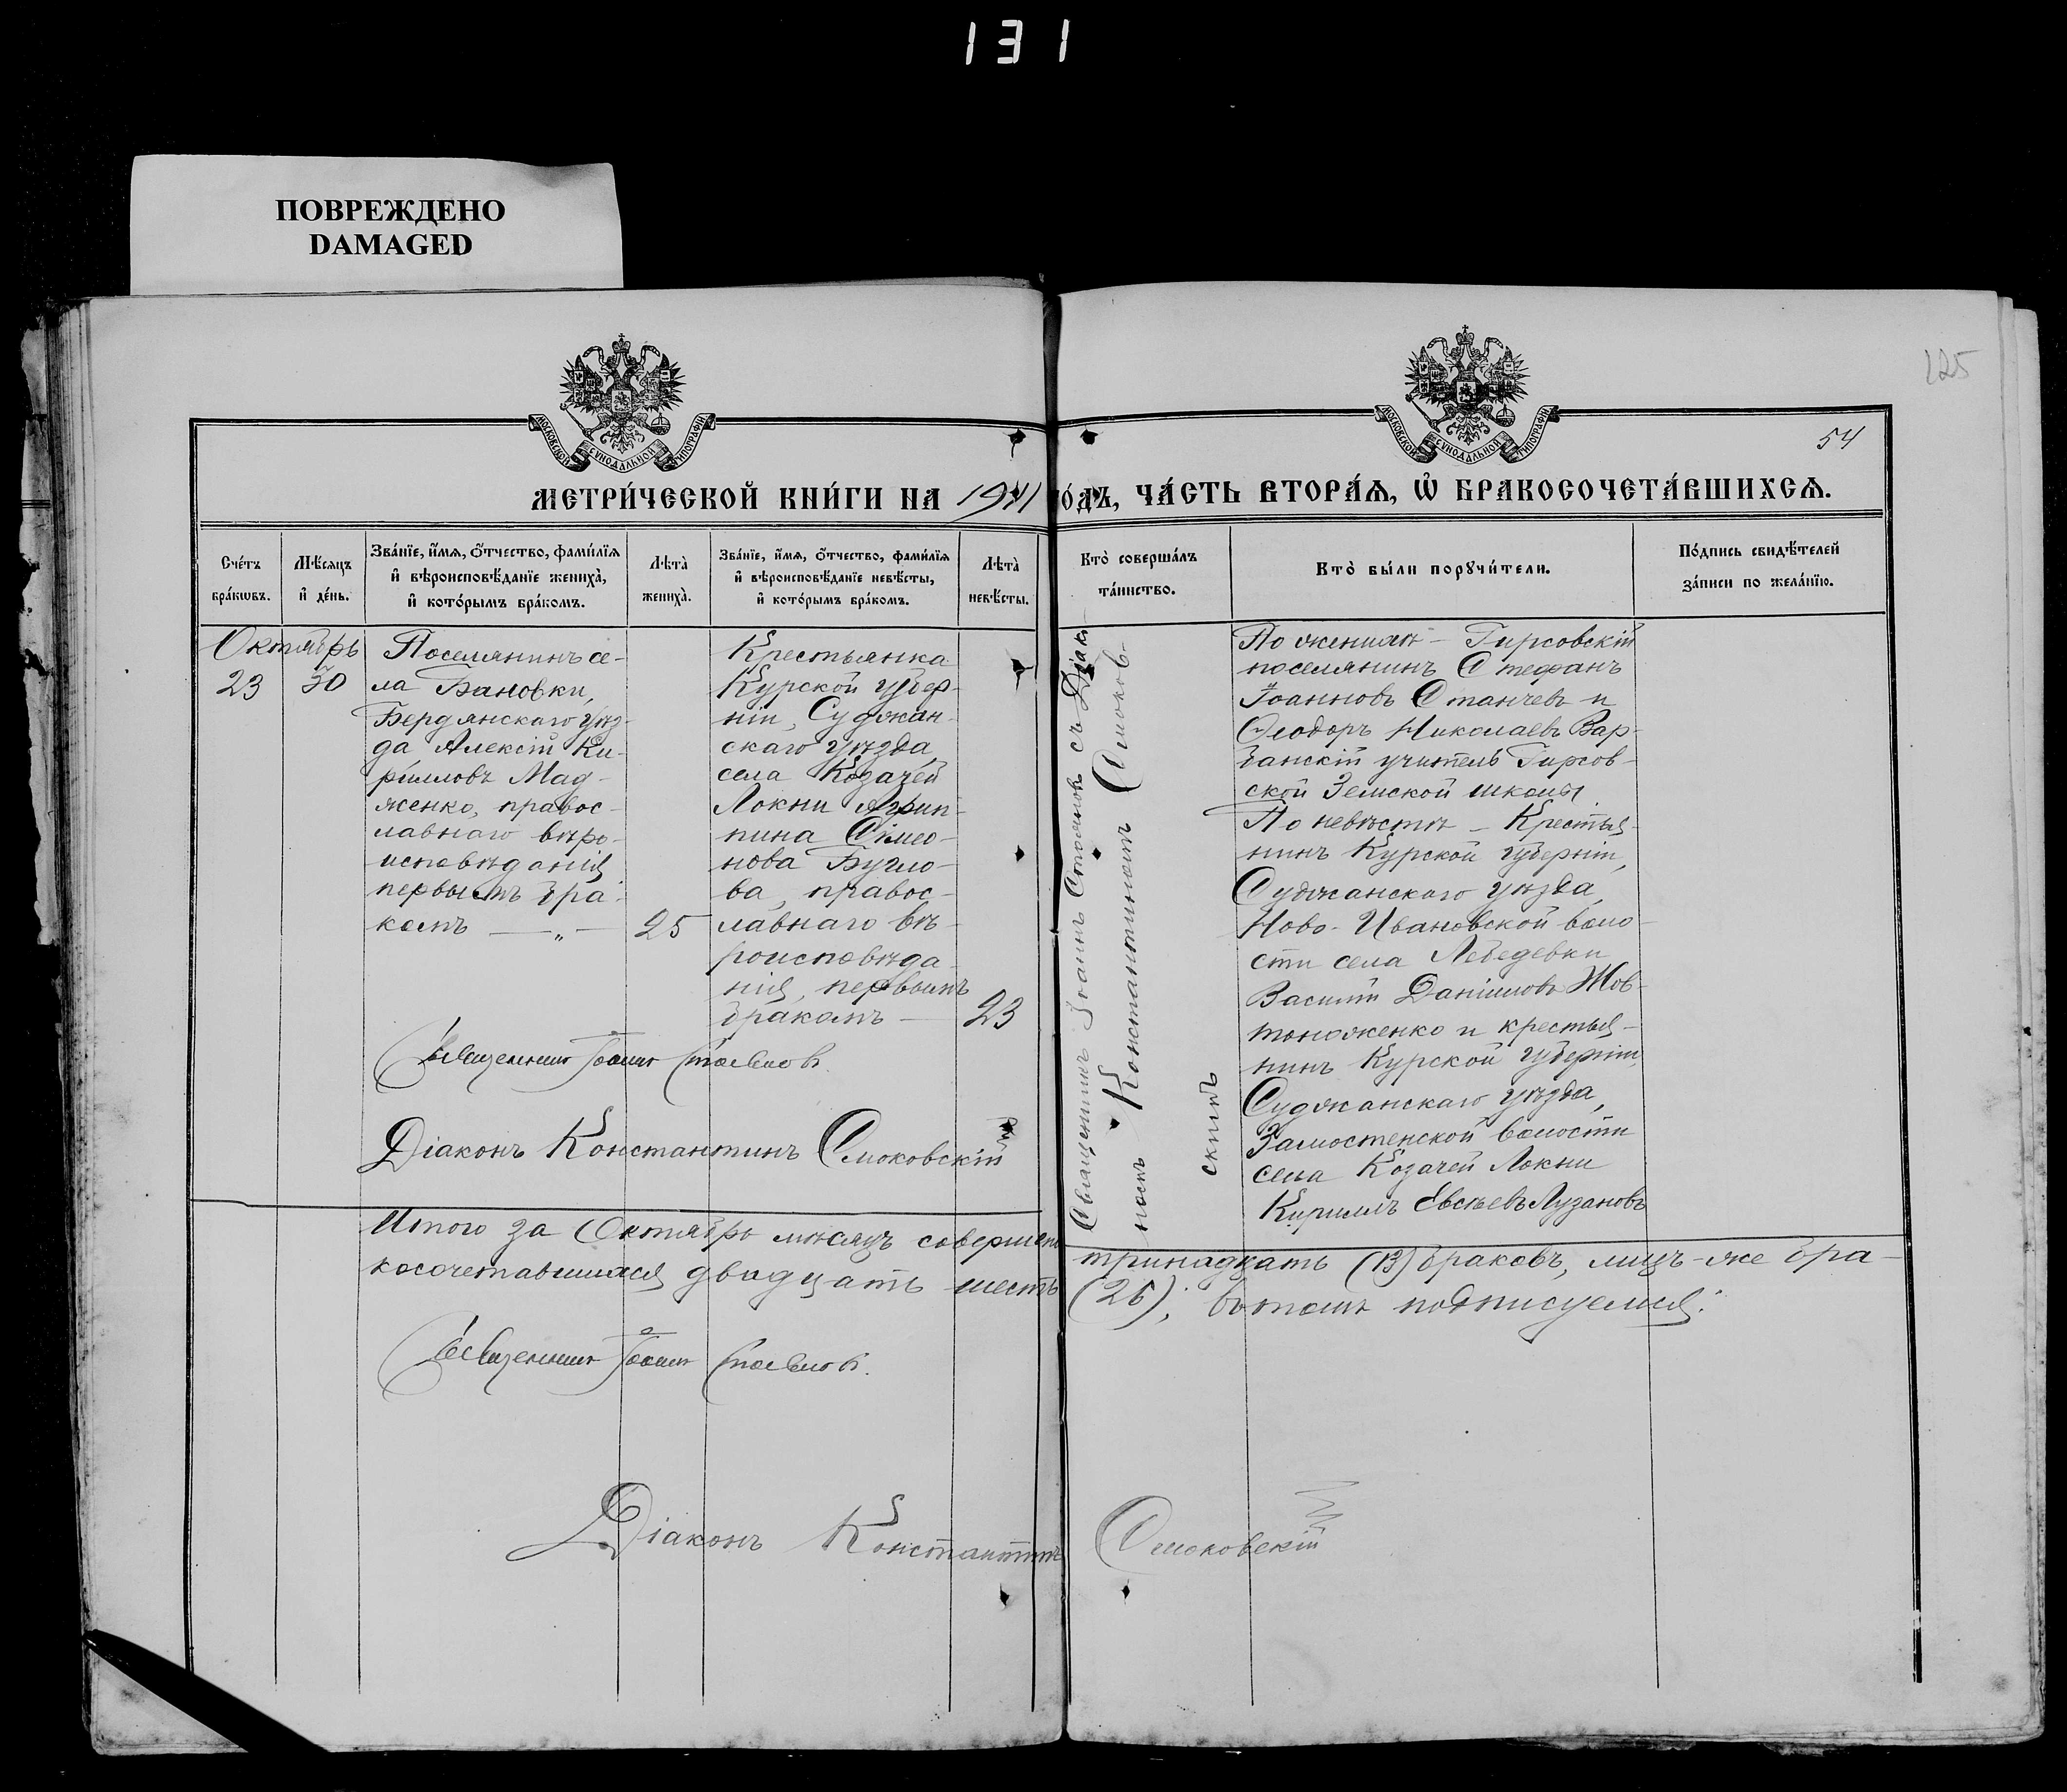 131
ПОВРЕЖДЕНО
DAMAGED
125
54
МОСКОВСКОЙ СѴНОДАЛЬНОЙ ТИПОГРАФІИ
МОСКОВСКОЙ СѴНОДАЛЬНОЙ ТИПОГРАФІИ
МЕТРИ́ЧЕСКОЙ КНИ́ГИ НА 1911
го́дъ, ЧА́СТЬ ВТОРА́Я, Ѡ҆ БРАКОСОЧЕТА́ВШИХСЯ.
Сче́тъ
бра́кѡвъ.
Мѣ́сяцъ
и҆ де́нь.
Зва́нїе, и҆́мя, ѻ҆́тчество, фами́лїя
и҆ вѣроисповѣ́данїе жениха̀,
и҆ кото́рымъ бра́комъ.
Лѣта̀
жениха̀.
Зва́нїе, и҆́мя, ѻ҆́тчество, фами́лїя
и҆ вѣроисповѣ́данїе невѣ́сты,
и҆ кото́рымъ бра́комъ.
Лѣта̀
невѣ́сты.
Кто̀ соверша́лъ
та́инство.
Кто̀ бы́ли порꙋчи́тели.
По́дпись свидѣ́телей
за́писи по жела́нїю.
Октябрь
23 30
Поселянинъ се-
ла Бановки,
Бердянскаго уѣз-
да Алексій Ки-
рилловъ Мад-
женко, правос-
лавнаго вѣро-
исповѣданія
первымъ бра-
комъ — „ —
25
Крестьянка
Курской губер-
ніи, Суджан-
скаго уѣзда,
села Козачей
Локни Агрип-
пина Симео-
нова Бугло-
ва, правос-
лавнаго вѣ-
роисповѣда-
нія, первымъ
бракомъ —
23
Священникъ Іоаннъ Стоиловъ съ Діако-
номъ Константиномъ Смоков-
скимъ
По женихѣ – Гирсовскій
поселянинъ Стефанъ
Іоанновъ Станчевъ и
Ѳеодоръ Николаевъ Вар-
банскій учитель Гирсов-
ской Земской школы
По невѣстѣ – Крестья-
нинъ Курской губерніи,
Суджанскаго уѣзда,
Ново-Ивановской воло-
сти села Лебедевки
Василій Даніиловъ Жов-
тоноженко и крестья-
нинъ Курской губерніи,
Суджанскаго уѣзда,
Замостенской волости
села Козачей Локни
Кириллъ Евсѣевъ Лузановъ
Священникъ Іоаннъ Стоиловъ.
Діаконъ Константинъ Смоковскій
Итого за Октябрь мѣсяцъ совершено тринадцать (13) браковъ, лицъ-же бра-
косочетавшихся двадцать шесть (26); въ томъ подписуемся:
Священникъ Іоаннъ Стоиловъ.
Діаконъ Константинъ Смоковскій